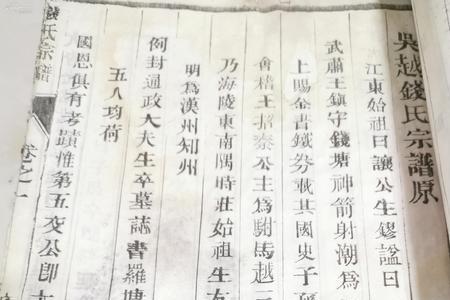 吳越錢氏宗譜原
江東始祖曰讓公生鏐諡曰
武肅王鎮守錢塘神箭射潮爲
上賜金書鐵券載其國史子
會稽王招泰公主爲駙馬越三
乃海陵東南隅時莊始祖生
明爲漢州知州
例封通政大夫生卒墓誌書羅塘
五人均荷
國恩俱有考蹟惟第五支公卽
錢氏宗譜
卷之一